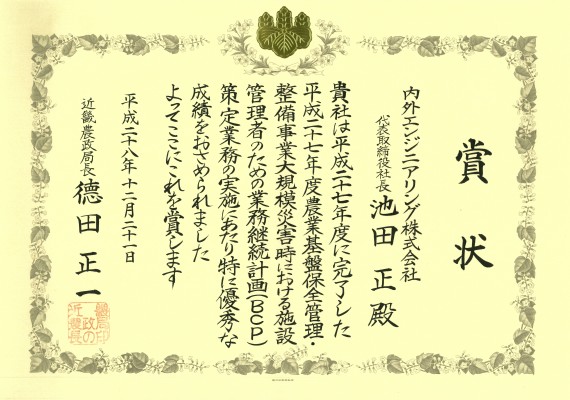 賞状
内外エンジニアリング株式会社
代表取締役社長 池田正殿
貴社は平成二十七年度に完了した
平成二十七年度農業基盤保全管理・
整備事業大規模災害時における施設
管理者のための業務継続計画(BCP)
策定業務の実施にあたり特に優秀な
成績をおさめられました
よってここにこれを賞します
平成二十八年十二月二十一日
近畿農政局長 徳田正一